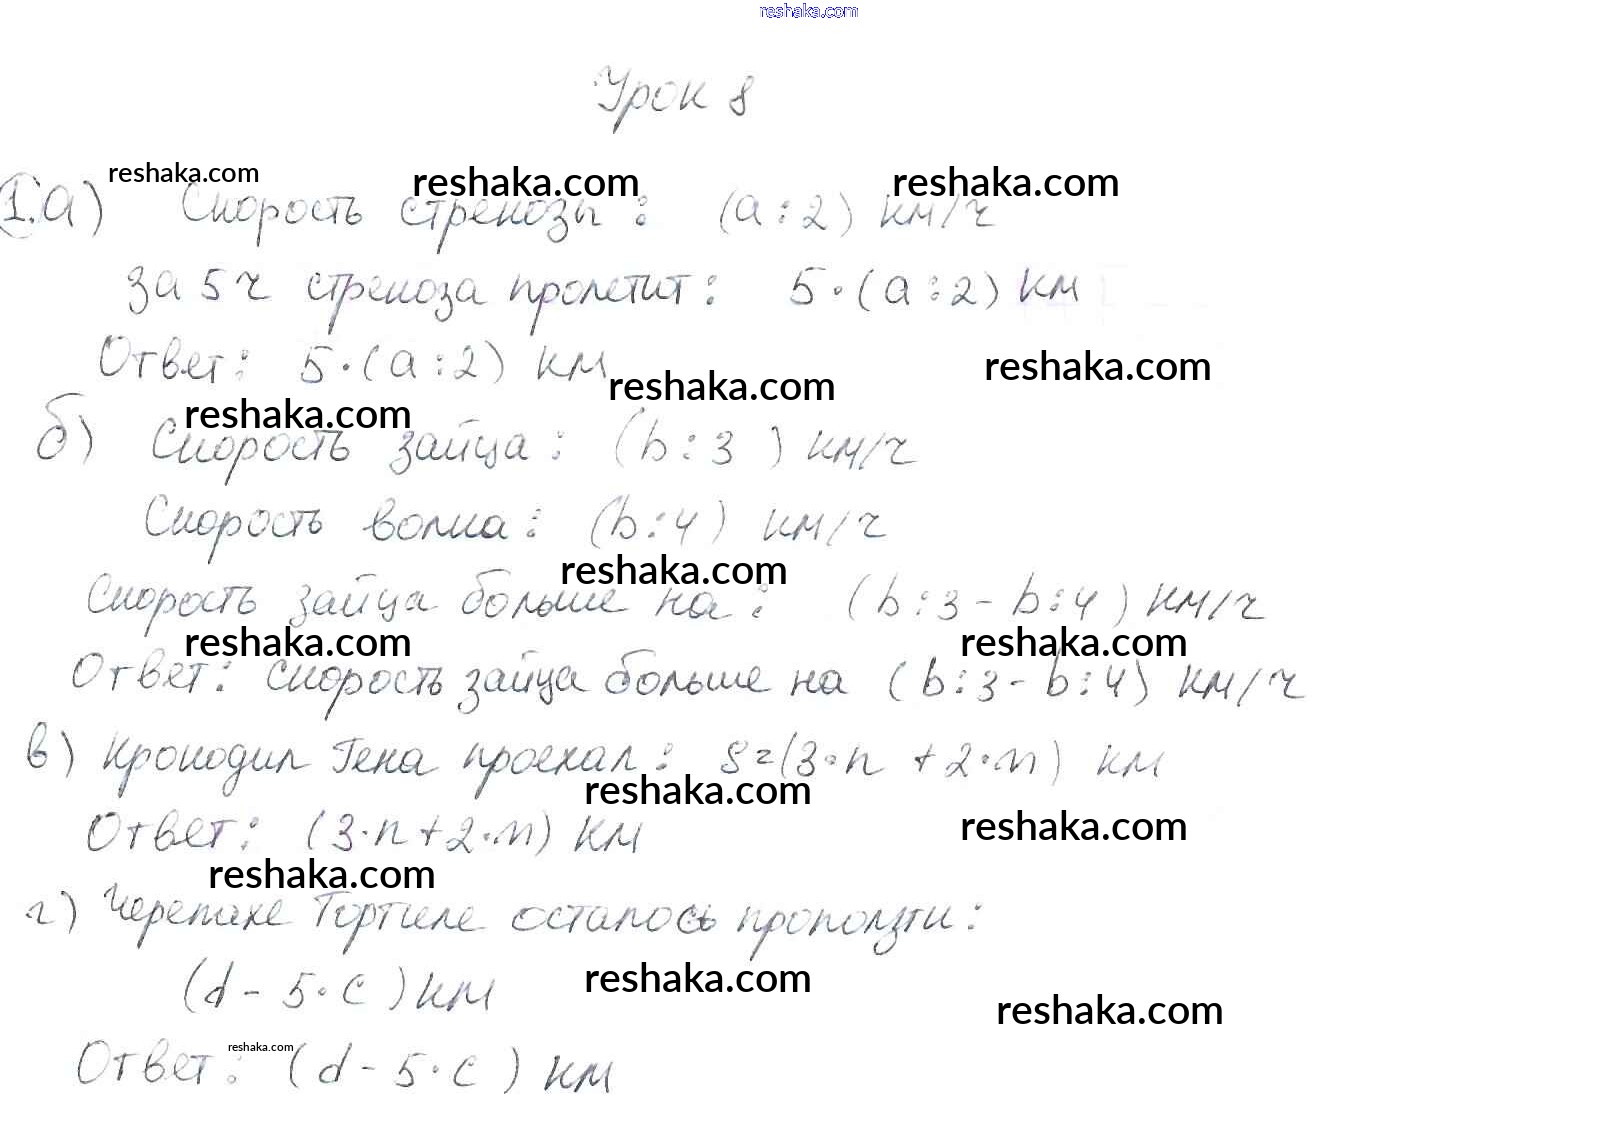 reshaka.com
Урок 8
reshaka.com reshaka.com reshaka.com
1. а) Скорость стрекозы: (a:2) км/ч
За 5 ч стрекоза пролетит: 5·(a:2) км
Ответ: 5·(a:2) км
reshaka.com reshaka.com
reshaka.com
б) Скорость зайца: (b:3) км/ч
Скорость волка: (b:4) км/ч
reshaka.com
Скорость зайца больше на: (b:3-b:4) км/ч
reshaka.com reshaka.com
Ответ: скорость зайца больше на (b:3-b:4) км/ч
в) Крокодил Гена проехал: S=(3·n+2·m) км
reshaka.com
Ответ: (3·n+2·m) км
reshaka.com
reshaka.com
г) Черепахе Тортиле осталось проползти:
(d-5·c) км
reshaka.com
reshaka.com
reshaka.com
Ответ: (d-5·c) км